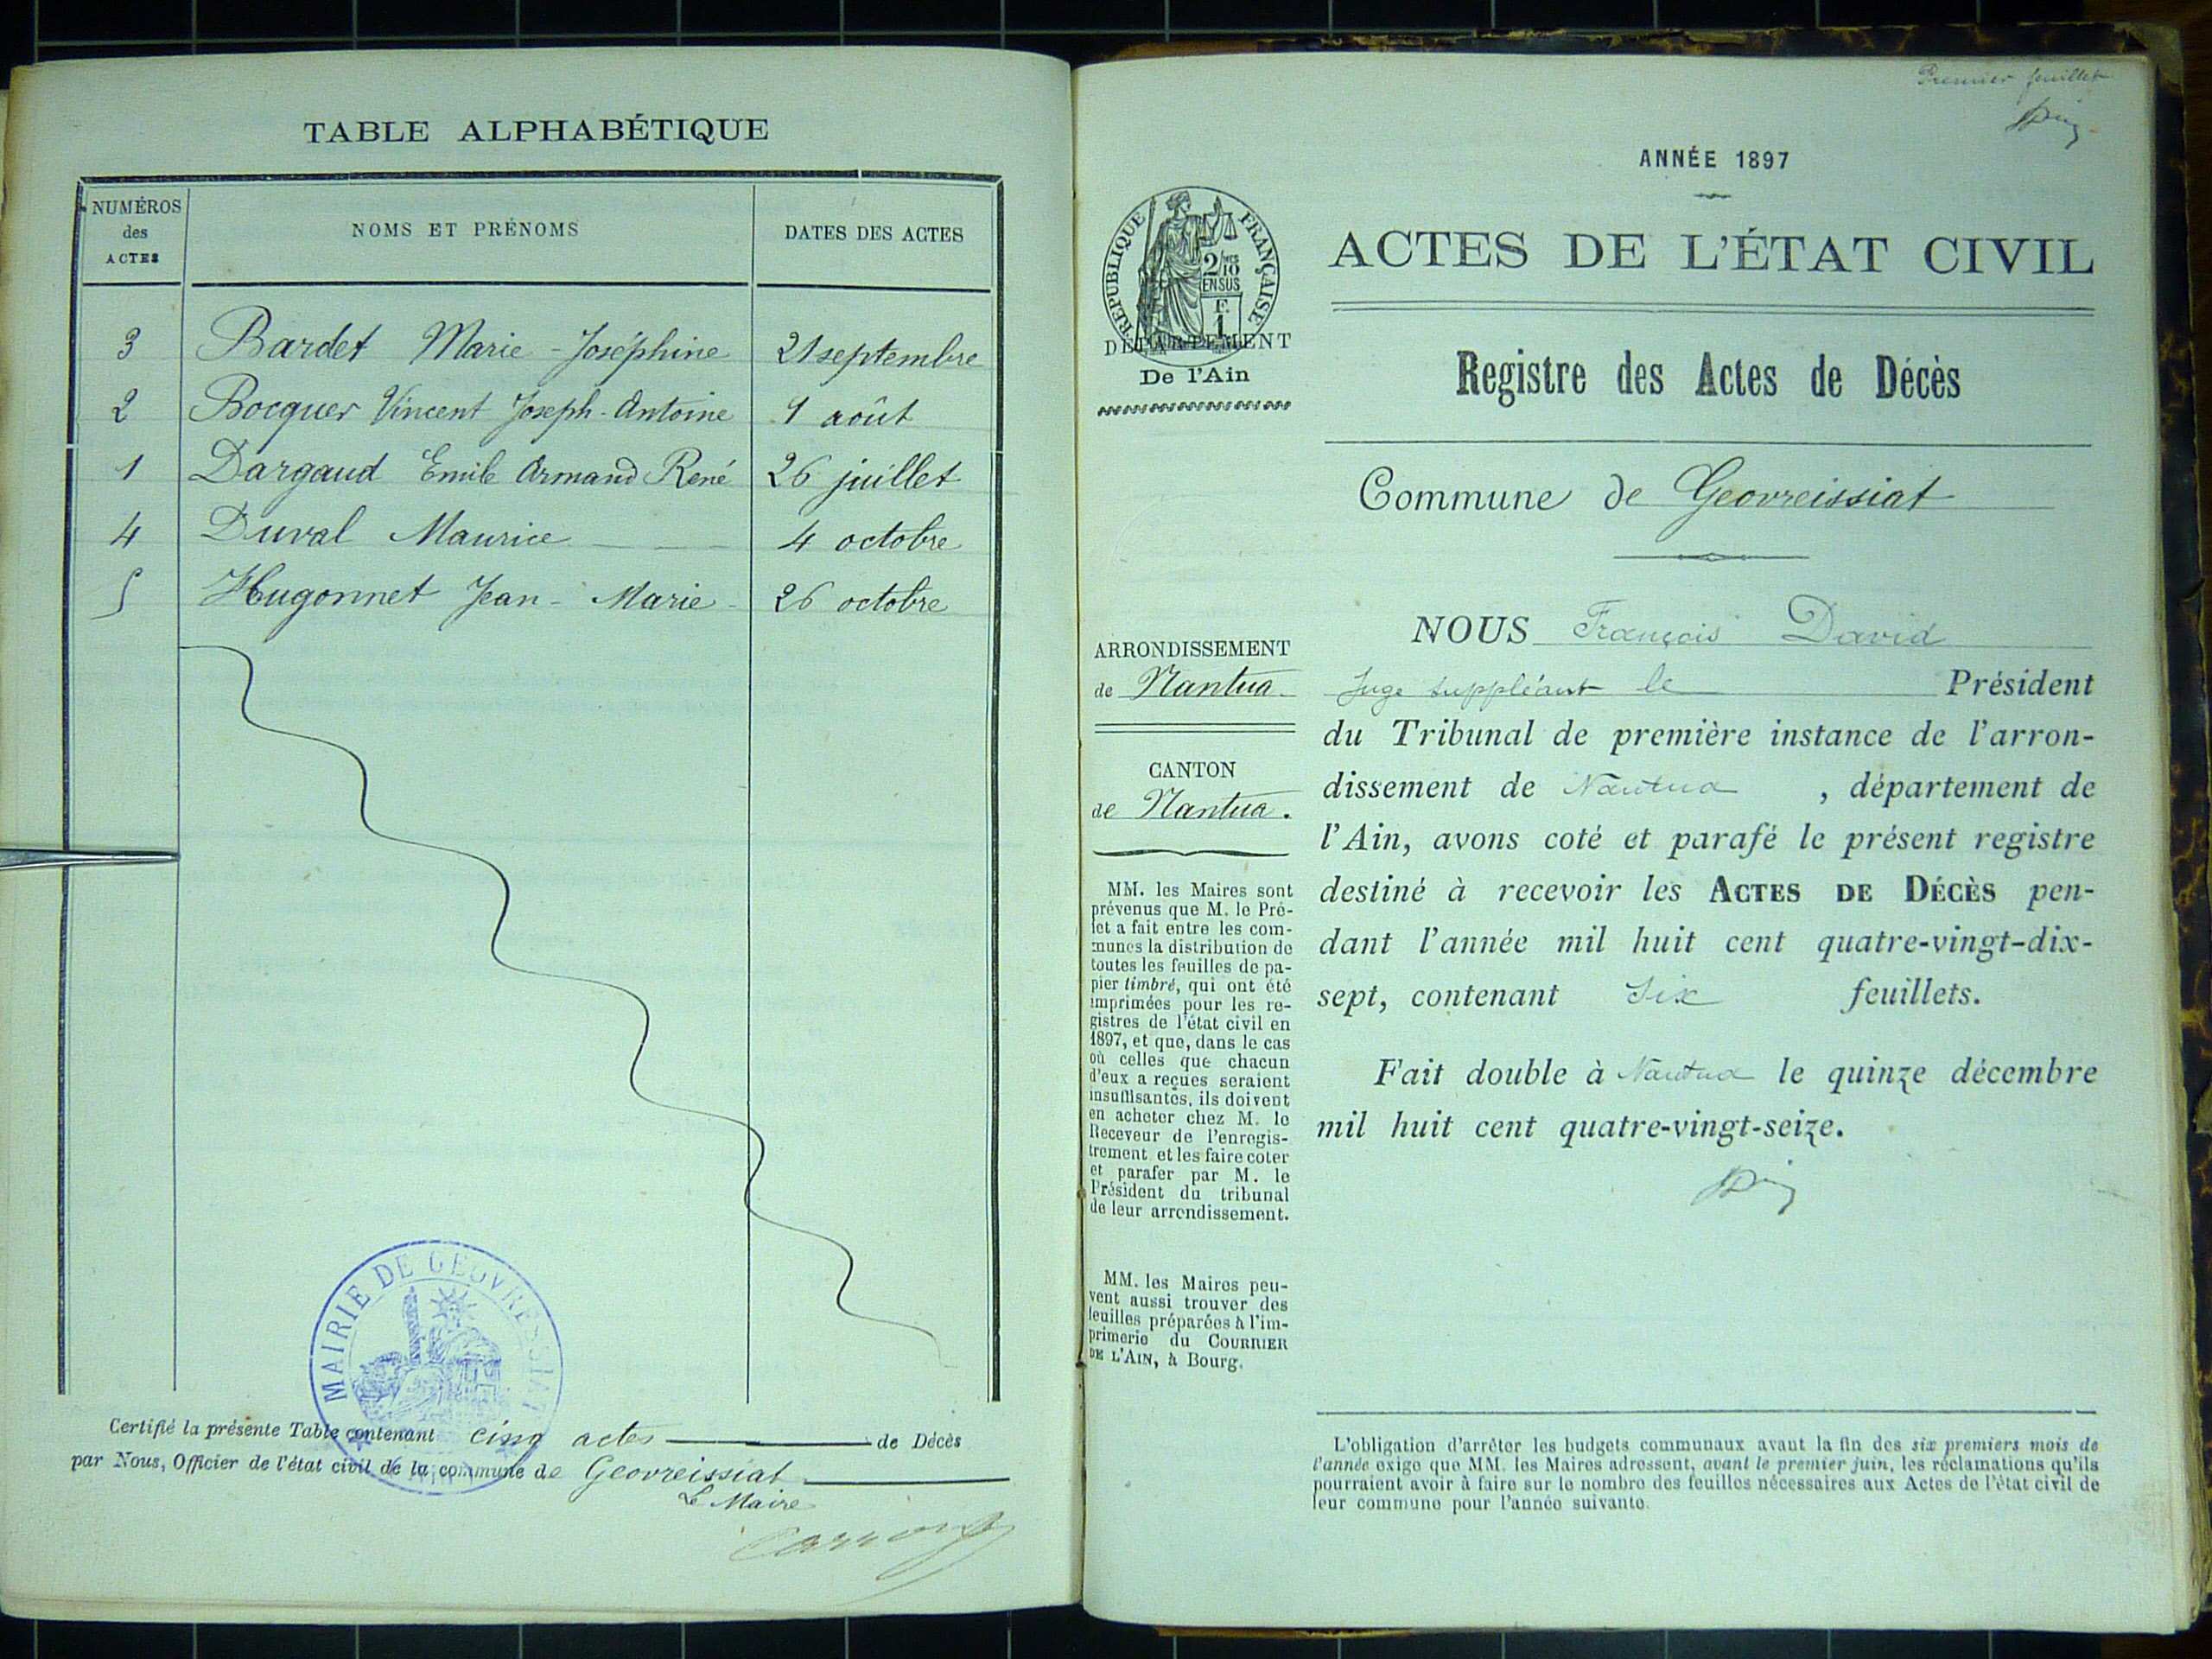 TABLE ALPHABÉTIQUE
NUMÉROS
des
ACTES
NOMS ET PRÉNOMS
DATES DES ACTES
3 Bardet Marie-Joséphine 21 septembre
2 Bocquer Vincent Joseph-Antoine 9 août
1 Dargaud Emile Armand René 26 juillet
4 Duval Maurice 4 octobre
5 Hugonnet Jean-Marie 26 octobre
MAIRIE DE GEOVREISSIAT
Certifié la présente Table contenant cinq actes de Décès
par Nous, Officier de l'état civil de la commune de Geovreissiat
Le Maire
Premier feuillet
ANNÉE 1897
RÉPUBLIQUE FRANÇAISE
2/10
EN SUS
F.
1
DÉPARTEMENT
De l'Ain
ACTES DE L'ÉTAT CIVIL
Registre des Actes de Décès
Commune de Geovreissiat
ARRONDISSEMENT
de Nantua
CANTON
de Nantua.
MM. les Maires sont
prévenus que M. le Pré-
fet a fait entre les com-
munes la distribution de
toutes les feuilles de pa-
pier timbré, qui ont été
imprimées pour les re-
gistres de l'état civil en
1897, et que, dans le cas
où celles que chacun
d'eux a reçues seraient
insuffisantes, ils doivent
en acheter chez M. le
Receveur de l'enregis-
trement et les faire coter
et parafer par M. le
Président du tribunal
de leur arrondissement.
MM. les Maires peu-
vent aussi trouver des
feuilles préparées à l'im-
primerie du COURRIER
DE L'AIN, à Bourg.
NOUS François David
Juge suppléant le Président
du Tribunal de première instance de l'arron-
dissement de Nantua , département de
l'Ain, avons coté et parafé le présent registre
destiné à recevoir les ACTES DE DÉCÈS pen-
dant l'année mil huit cent quatre-vingt-dix-
sept, contenant six feuillets.
Fait double à Nantua le quinze décembre
mil huit cent quatre-vingt-seize.
L'obligation d'arrêter les budgets communaux avant la fin des six premiers mois de
l'année exige que MM. les Maires adressent, avant le premier juin, les réclamations qu'ils
pourraient avoir à faire sur le nombre des feuilles nécessaires aux Actes de l'état civil de
leur commune pour l'année suivante.